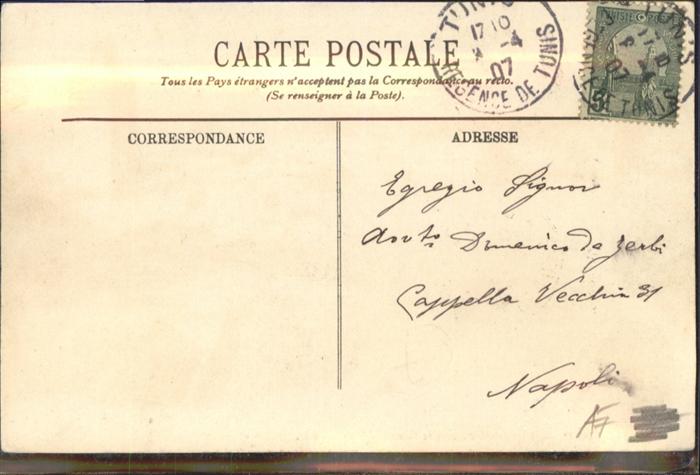 CARTE POSTALE
Tous les Pays étrangers n'acceptent pas la Correspondance au recto.
(Se renseigner à la Poste).
TUNIS
17 10
4
07
REGENCE DE TUNIS
TUNISIE POSTES
5
TUNIS
07
CORRESPONDANCE
ADRESSE
Egregio Signor
Domenico de Zerbi
Cappella Vecchia 31
Napoli